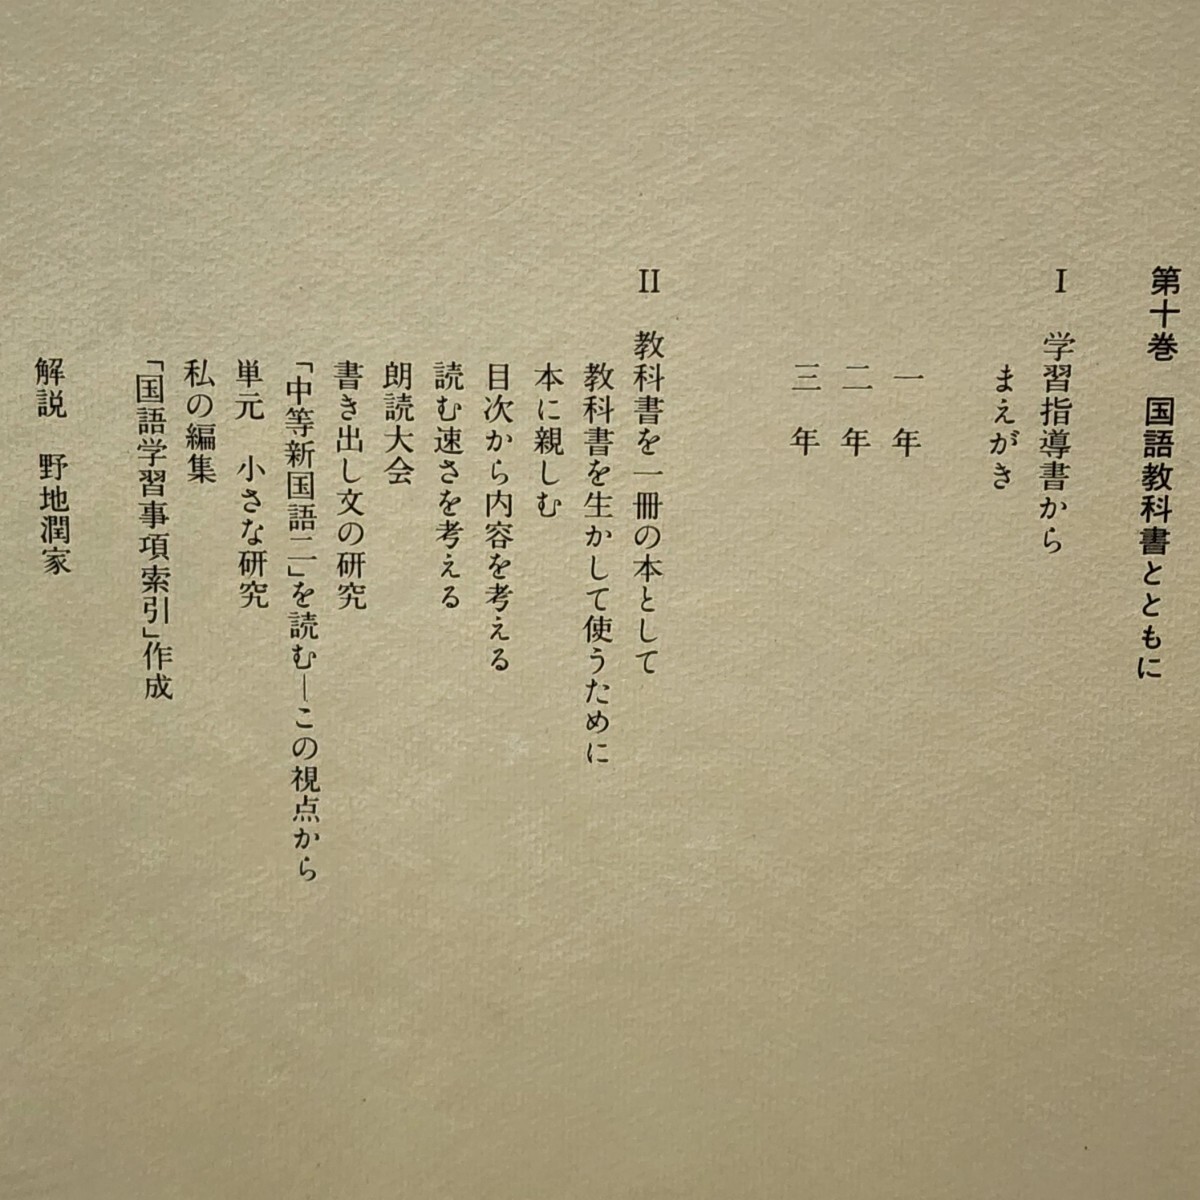 第十巻 国語教科書とともに
I 学習指導書から
まえがき
一年
二年
三年
II 教科書を一冊の本として
教科書を生かして使うために
本に親しむ
目次から内容を考える
読む速さを考える
朗読大会
書き出し文の研究
「中等新国語二」を読む―この視点から
単元 小さな研究
私の編集
「国語学習事項索引」作成
解説 野地潤家